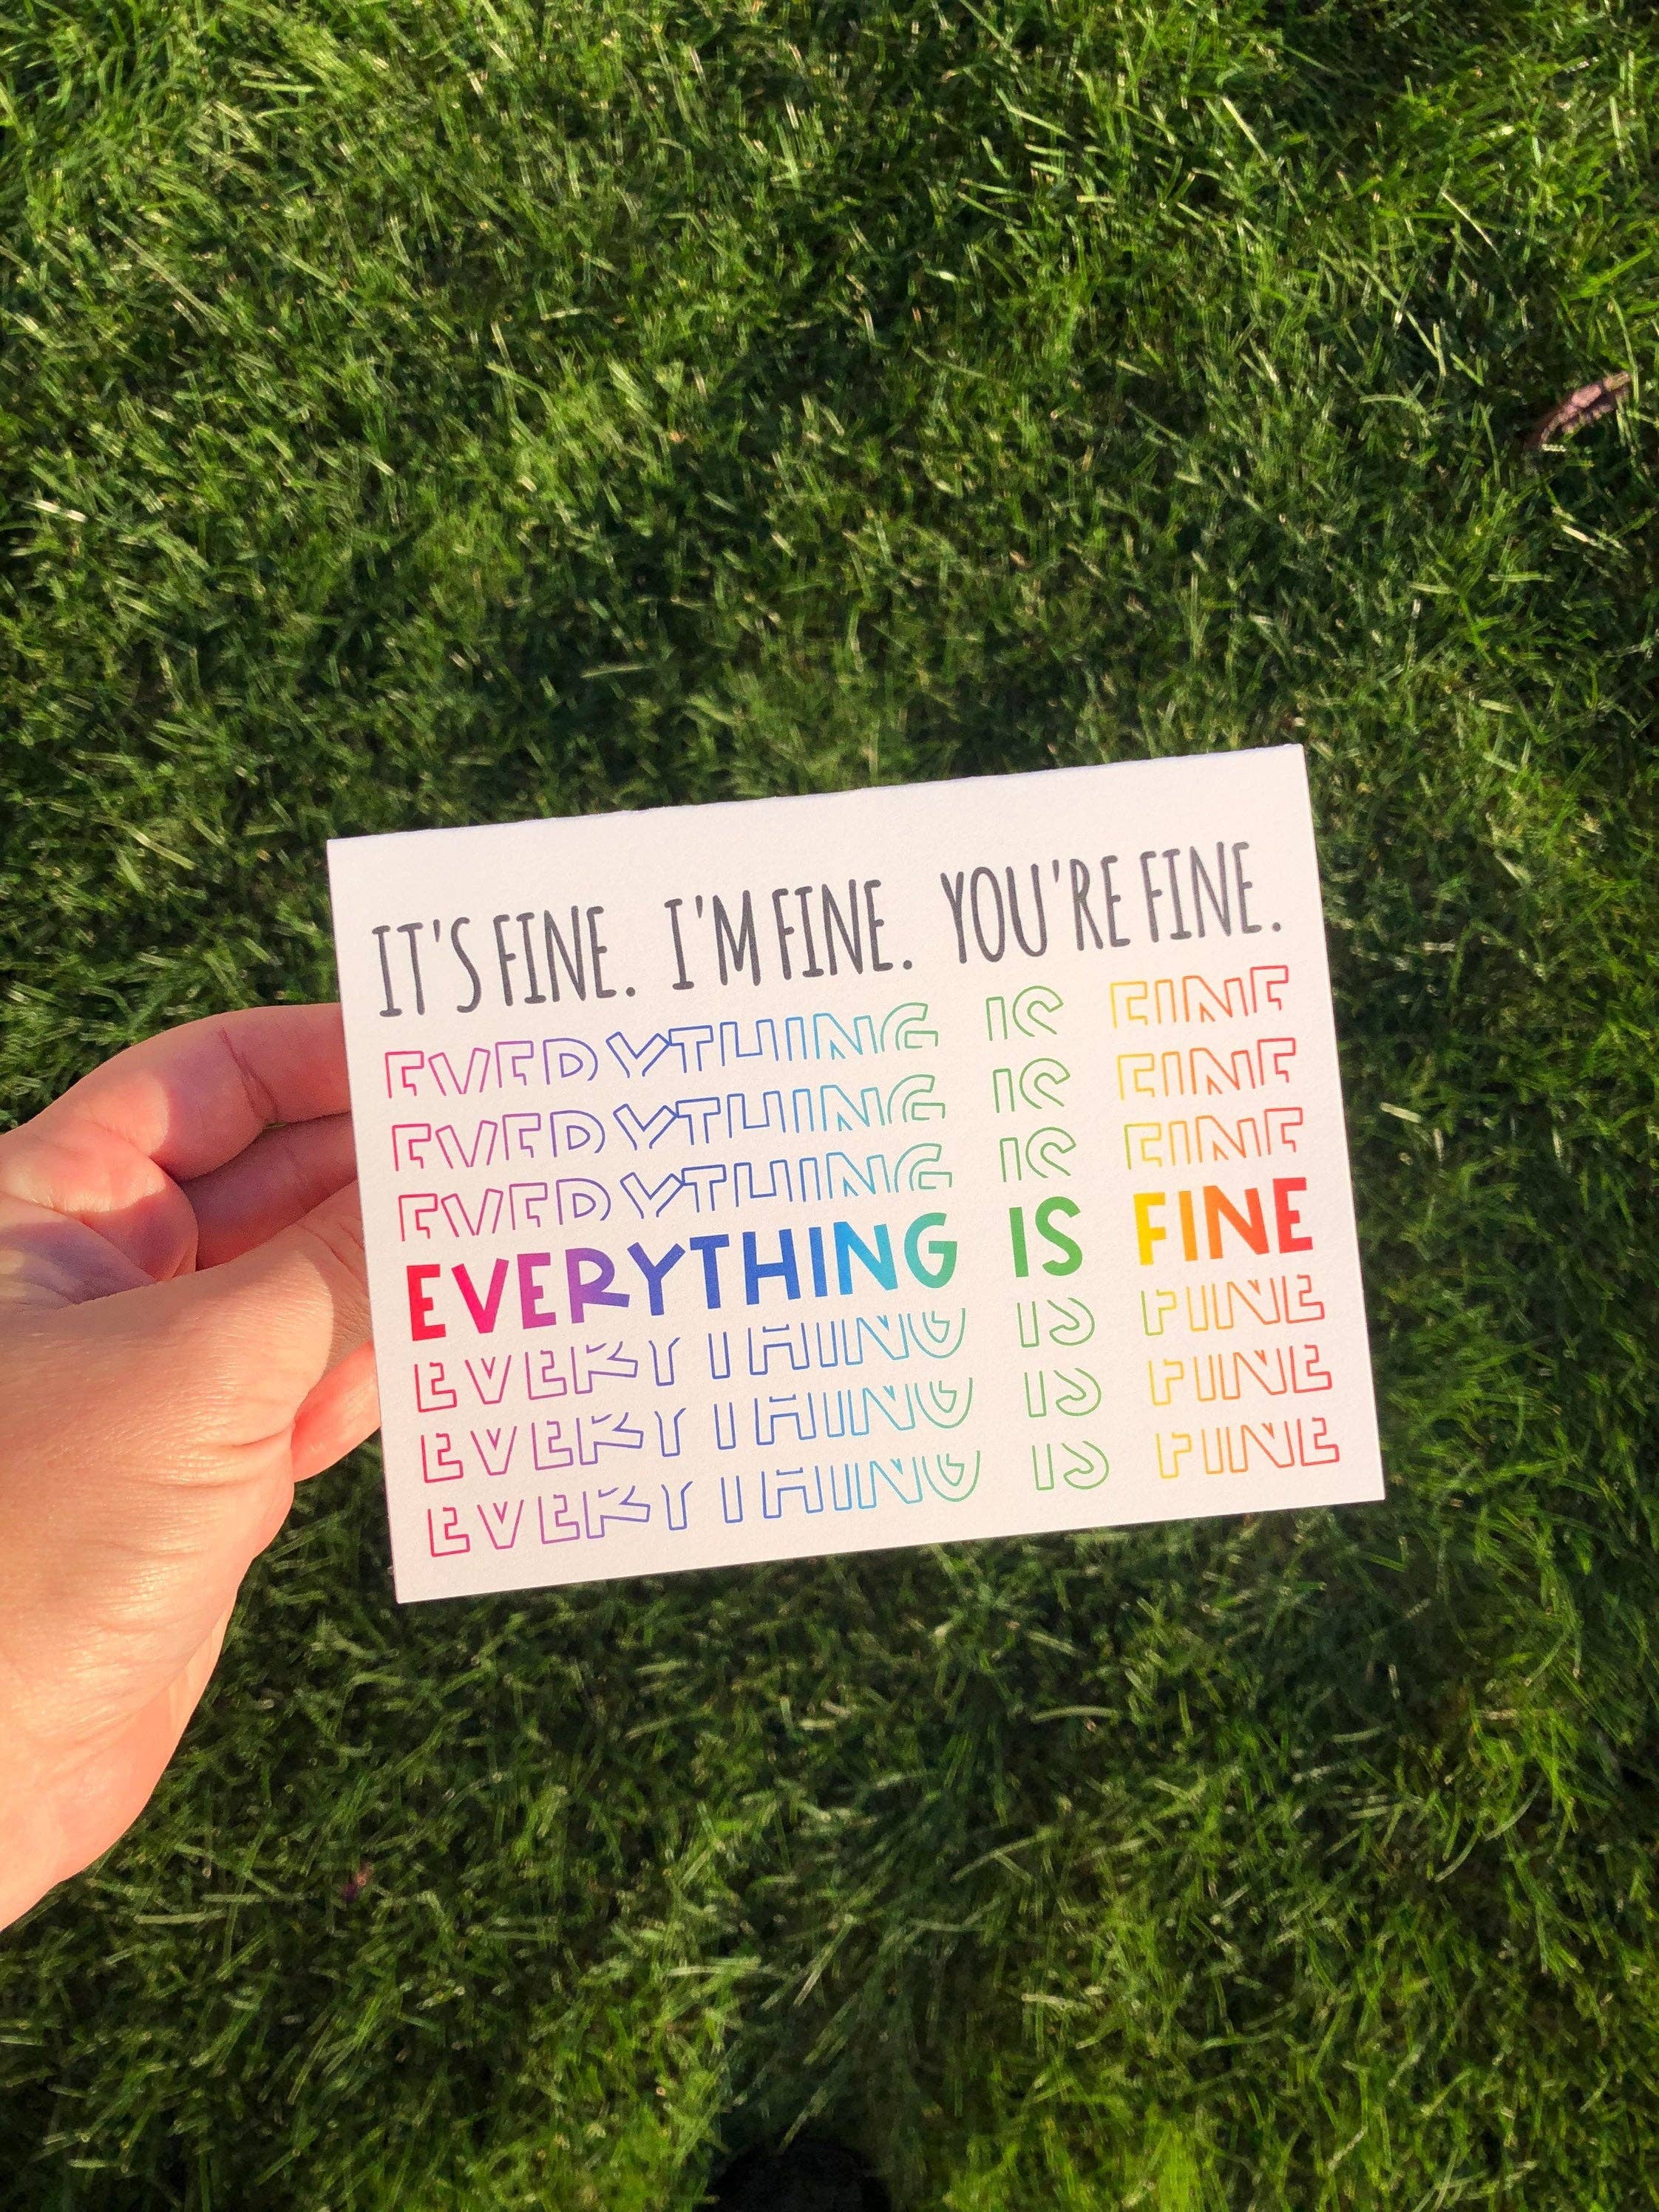 IT'S FINE. I'M FINE. YOU'RE FINE.
EVERYTHING IS FINE
EVERYTHING IS FINE
EVERYTHING IS FINE
EVERYTHING IS FINE
EVERYTHING IS FINE
EVERYTHING IS FINE
EVERYTHING IS FINE